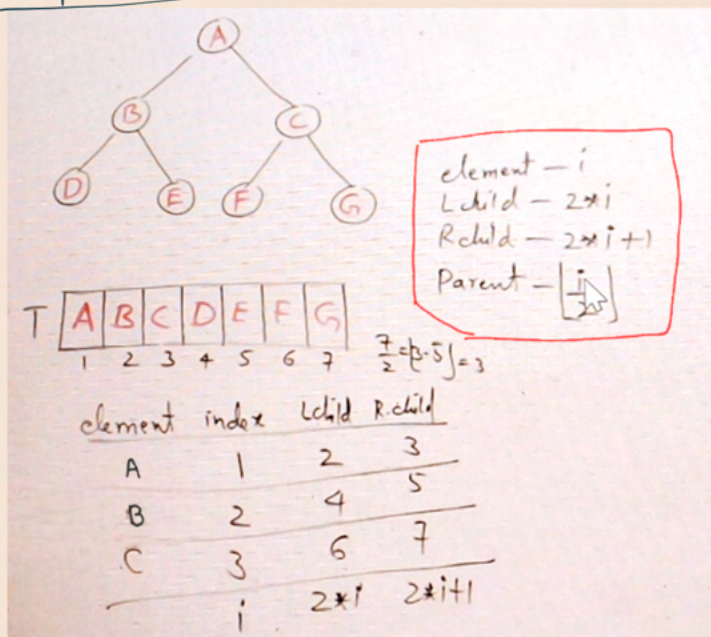 A
B C
D E F G
element - i
Lchild - 2*i
Rchild - 2*i+1
Parent - ⌊i/2⌋
T A B C D E F G
1 2 3 4 5 6 7
7/2 = ⌊3.5⌋ = 3
element index Lchild R.child
A 1 2 3
B 2 4 5
C 3 6 7
i 2*i 2*i+1